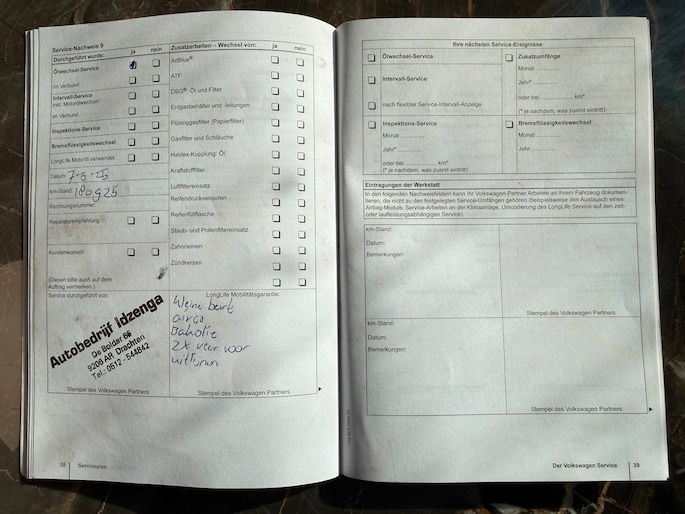 Service-Nachweis 9
Durchgeführt wurde: ja nein
Ölwechsel-Service
im Verbund
Intervall-Service
inkl. Motorölwechsel
im Verbund
Inspektions-Service
Bremsflüssigkeitswechsel
LongLife Motoröl verwendet
Datum: 7-5-25
km-Stand: 180925
Rechnungsnummer:
Reparaturempfehlung
Kundenwunsch
(Diesen bitte auch auf dem
Auftrag vermerken.)
Service durchgeführt von:
Autobedrijf Idzenga
De Bolder 66
9206 AR Drachten
Tel.: 0512-544842
Stempel des Volkswagen Partners
Zusatzarbeiten – Wechsel von: ja nein
AdBlue®
ATF
DSG®: Öl und Filter
Erdgasbehälter und -leitungen
Flüssiggasfilter (Papierfilter)
Gasfilter und Schläuche
Haldex-Kupplung: Öl
Kraftstofffilter
Luftfiltereinsatz
Reifendrucksensoren
Reifenfüllflasche
Staub- und Pollenfiltereinsatz
Zahnriemen
Zündkerzen
LongLife Mobilitätsgarantie:
Kleine beurt
airco
2x veer voor
uitlijnen
Stempel des Volkswagen Partners
38 Serviceplan
Ihre nächsten Service-Ereignisse
Ölwechsel-Service
Intervall-Service
nach flexibler Service-Intervall-Anzeige
Zusatzumfänge
Monat
Jahr*
oder bei km*
(* je nachdem, was zuerst eintritt)
Inspektions-Service
Monat
Jahr*
oder bei km*
(* je nachdem, was zuerst eintritt)
Bremsflüssigkeitswechsel
Monat
Jahr
Eintragungen der Werkstatt
In den folgenden Nachweisfeldern kann Ihr Volkswagen Partner Arbeiten an Ihrem Fahrzeug dokumen-
tieren, die nicht zu den festgelegten Service-Umfängen gehören (beispielsweise den Austausch eines
Airbag-Moduls, Service-Arbeiten an der Klimaanlage, Umcodierung des LongLife Service auf den zeit-
oder laufleistungsabhängigen Service).
km-Stand:
Datum:
Bemerkungen:
Stempel des Volkswagen Partners
km-Stand:
Datum:
Bemerkungen:
Stempel des Volkswagen Partners
Der Volkswagen Service 39